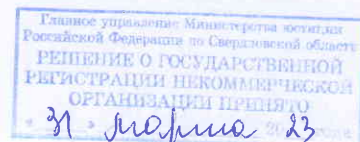 Главное управление Министерства юстиции
Российской Федерации по Свердловской области
РЕШЕНИЕ О ГОСУДАРСТВЕННОЙ
РЕГИСТРАЦИИ НЕКОММЕРЧЕСКОЙ
ОРГАНИЗАЦИИ ПРИНЯТО
« 31 » марта 20 23